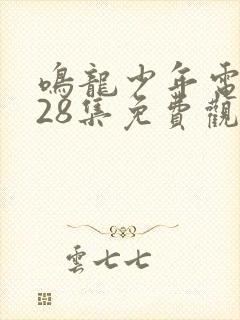 鳴龍少年電
28集免費觀
雲七七